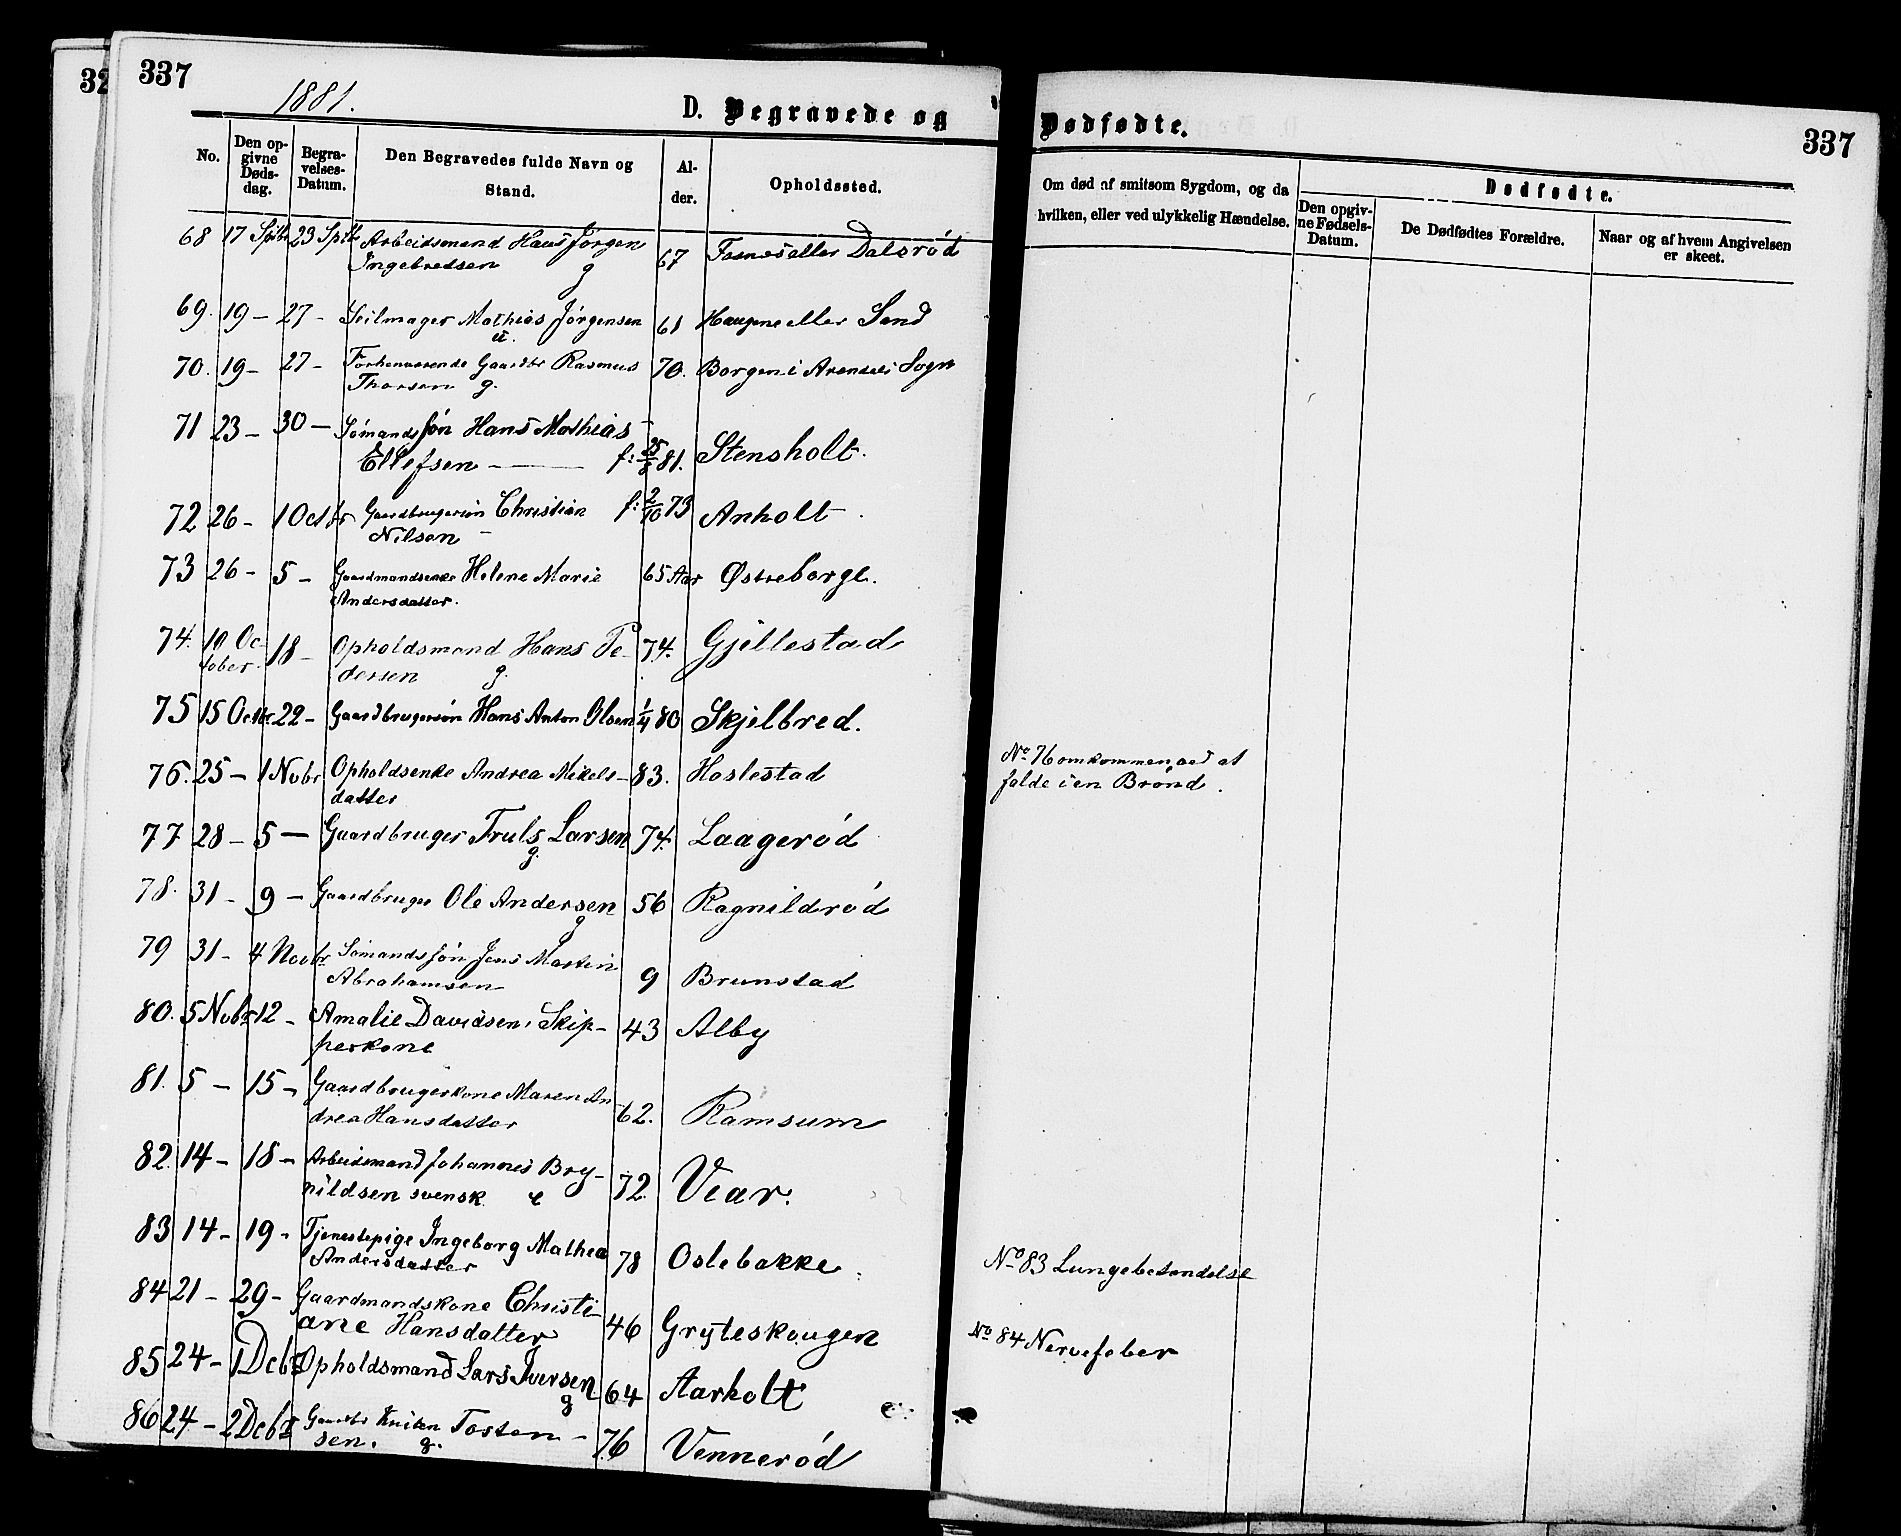 337
1881.
D. Begravede og
No. Den opgivne Dødsdag. Begravelses-Datum. Den Begravedes fulde Navn og Stand. Alder. Opholdssted.
68 17 Sptbr 23 Sptbr Arbeidsmand Hans Jørgen 67 Fosnes eller Dalsrød
Ingebretsen g
69. 19 – 27 – Seilmager Mathias Jørgensen 61 Haugene eller Sand
70. 19 – 27 – Forhenværende Gaardbr Rasmus 70. Borgen i Arendals Sogn
Thorsen g.
71 23 – 30 – Sömands sön Hans Mathias
Ellefsen – f: 25/8 81. Stensholt.
72 26 – 1 Octbr Gaardbrugersön Christian f: 2/10 73 Anholt
Nilsen –
73 26 – 5 – Gaardmandsenke Helene Marie 65 Aar Østreborge.
Andersdatter.
74. 10 Oc- 18 – Opholdsmand Hans Pe- 74. Gjellestad
tober. dersen g.
75 15 Octbr. 22 – Gaardbrugersön Hans Anton Olsen 1/4 80 Skjelbred.
76. 25 – 1 Nvbr Opholdsenke Andrea Mikels- 83. Haslestad
datter
77 28 – 5 – Gaardbruger Truls Larsen 74. Laagerød
g.
78. 31 – 9 – Gaardbruger Ole Andersen 56 Ragnildrød
g
79 31 – 4 Novbr Sömands sön Jens Martin 9 Brunstad
Abrahamsen
80. 5 Nvbr 12 – Amalie Davidsen, Skip- 43 Alby
perkone
81. 5 – 15 – Gaardbrugerkone Maren An-
drea Hansdatter 62. Ramsum
82. 14 – 18 – Arbeidsmand Johannes Bry-
nildsen svensk e 72. Vear.
83 14 – 19 – Tjenestepige Ingeborg Mathea 78 Oslebakke
Andersdatter
84 21 – 29 – Gaardmandskone Christi-
ane Hansdatter 46 Gryteskougen
85 24 – 1 Dcbr Opholdsmand Lars Iversen 64 Aarholt
g
86 24 – 2 Dcbr Gaardbr Tosten – 76 Vennerød
sen. g.
Dødfødte.
337
Om død af smitsom Sygdom, og da hvilken, eller ved ulykkelig Hændelse.
Dødfødte.
Den opgivne Fødsels-Datum. De Dødfødtes Forældre. Naar og af hvem Angivelsen er skeet.
No 76 omkommen ved at
falde i en Brønd.
No 83 Lungebetendelse
No 84 Nervefeber